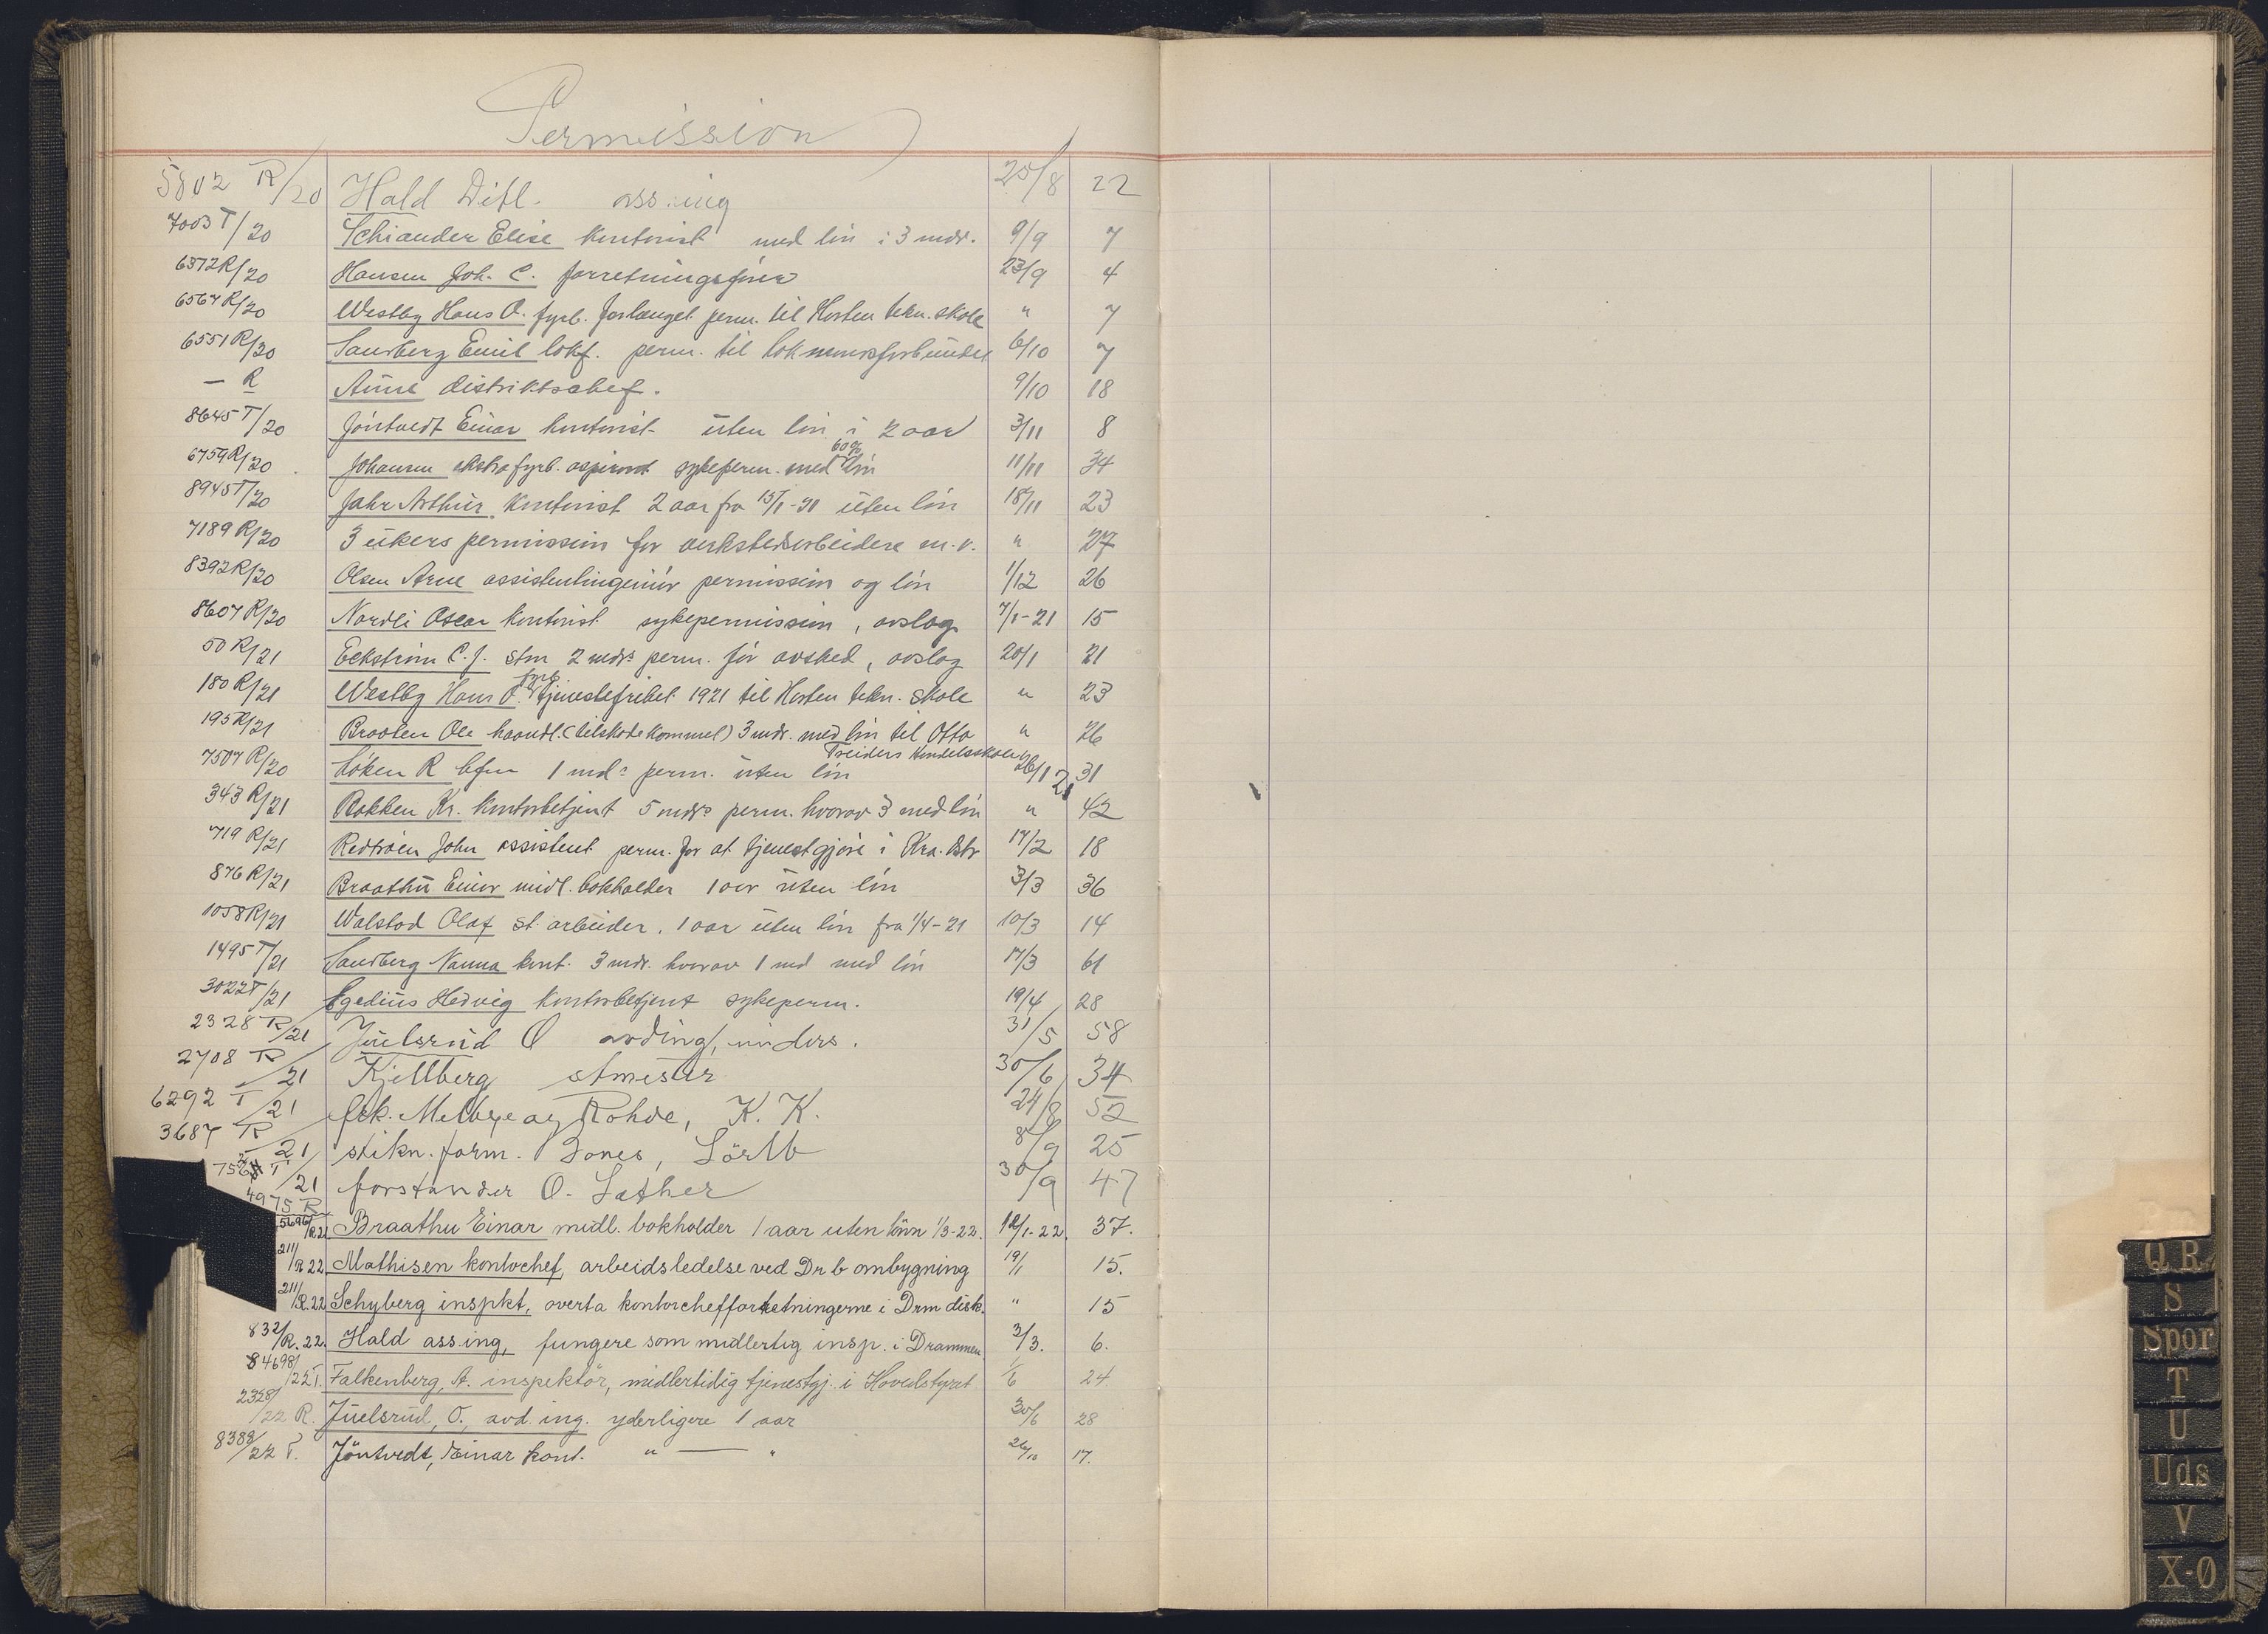 Permission
5802 R/20 Hald Ditl. ass. ing 25/8 22
7003 T/20 Schiander Elise kontorist med lön i 3 mdr. 9/9 7
6372 R/20 Hansen Joh. C. forretningsförer 23/9 4
6567 R/20 Westby Hans O. fyrb. forlænget perm. til Horten tekn. skole " 7
6551 R/20 Sandberg Emil lokf. perm. til Lokmandsforbundet 6/10 7
— R distriktschef. 9/10 18
8645 T/20 Jöntvedt Einar kontorist uten lön i 2 aar 3/11 8
6759 R/20 Johansen ekstrafyrb. aspirant sykeperm. med 60% lön 11/11 34
8945 T/20 Jahr Arthur kontorist 2 aar fra 15/1-21 uten lön 18/11 23
7189 R/20 3 ukers permission for verkstedsarbeidere m.v. " 27
8392 R/20 Olsen Arne assistentingeniör permission og lön 1/12 26
8607 R/20 Nordli Oscar kontorist sykepermission, avslag 7/1-21 15
50 R/21 Eckström C. J. stm 2 mdrs perm. för avsked, avslag 20/1 21
180 R/21 Westby Hans O. fyrb. tjenestefrihet 1921 til Horten tekn. skole " 23
195 R/21 Braaten Ole haandl. (tilskadekommet) 3 mdr. med lön til Otto " 26
Treiders Handelsskole
7507 R/20 Löken R bfm 1 mds perm. uten lön 26/1 21 31
343 R/21 Bakken Kr. kontorbetjent 5 mdrs perm. hvorav 3 med lön " 42
719 R/21 Redtröen John assistent perm. for at tjenestgjöre i Kra. dstr 17/2 18
876 R/21 Braathu Einar midl. bokholder 1 aar uten lön 3/3 36
1058 R/21 Walstad Olaf st. arbeider. 1 aar uten lön fra 1/4-21 10/3 14
1495 T/21 Sandberg Nanna kont. 3 mdr. hvorav 1 md med lön 17/3 61
3022 T/21 Egedius Hedvig kontorbetjent sykeperm. 19/4 28
2328 R/21 Juelsrud O avding, 31/5 58
2708 R/21 Kjellberg stmester 30/6 34
6292 T/21 frk. Melbye og Rohde, K. K. 24/8 52
3687 R/21 stikn. form. 8/9 25
T/21 forstander O. Sæther 30/9 47
4975 R
5696/R 21 Braathu Einar midl. bokholder 1 aar uten lönn 1/3-22. 12/1-22. 37.
211/R 22 Mathisen kontochef, arbeidsledelse ved Dr b ombygning 19/1 15.
211/R. 22 Schyberg inspkt, overta kontorchefforretningerne i Drm disk. " 15
832/R. 22. Hald ass. ing, fungere som midlertig insp. i Drammen. 2/3. 6.
84698/22 T. Falkenberg, A. inspektör, midlertidig tjenestgj. i Hovedstyret 1/6 24
2328/22 R. Juelsrud, O., avd. ing. yderligere 1 aar 30/6 28
8383/22 T. Jöntvedt, Einar kont. " — " 26/10 17.
Q R
S
Spor
T
U
Uds
V
X-Ø